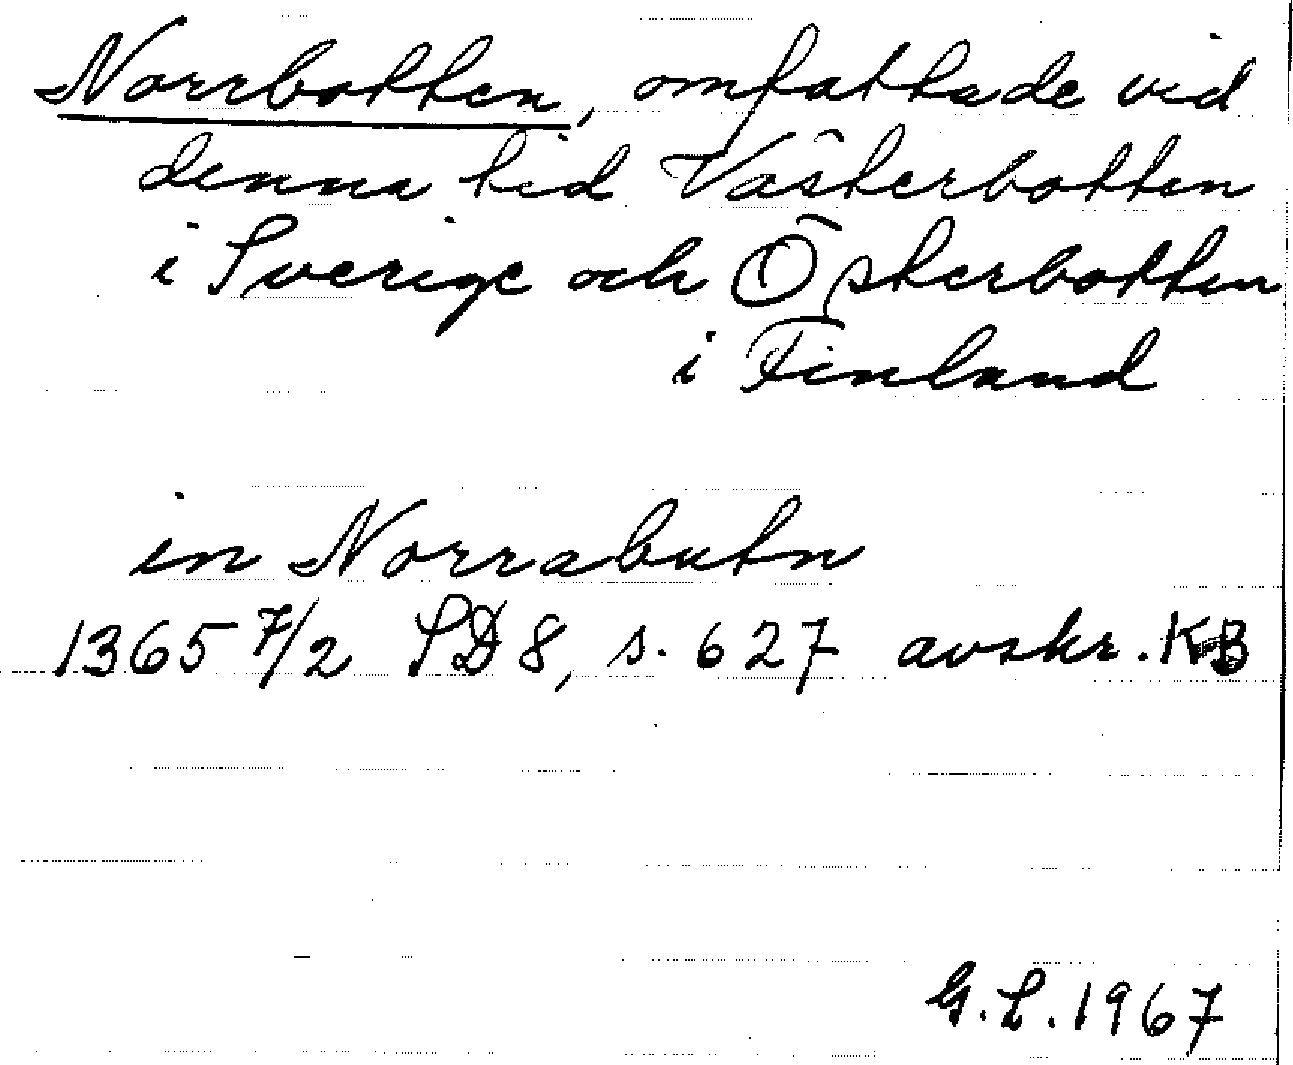 Norrbotten, omfattade vid
denna tid Västerbotten
i Sverige och Österbotten
i Finland
in Norrabutn
1365 7/2 SD 8, s. 627 avskr. KB
G.L. 1967